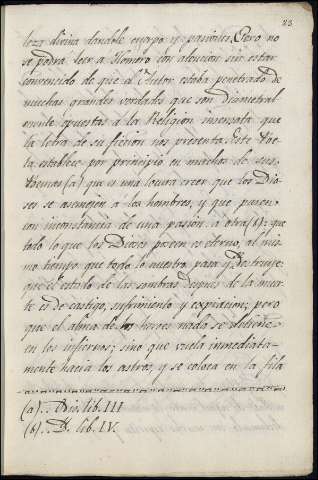 23
leza divina dandole cuerpo y pasiones. Pero no
se podrá leer a Homero con atencion sin estar
convencido de que el Autor estaba penetrado de
muchas grandes verdades que son diametral
mente opuestas á la Religion insensata que
la letra de su ficcion nos presenta. Este Poe-
ta establece por principio en muchos de sus
Poemas (a) que es una locura creer que los Dio-
ses se asemejen a los hombres, y que pasen
con inconstancia de una pasion a otra (b): que
todo lo que los Dioses poseen es eterno, al mis
mo tiempo que todo lo nuestro pasa y se destruye:
que el estado de las sombras despues de la muer-
te es de castigo, sufrimiento y expiacion; pero
que el alma de los heroes nada se detiene
en los infiernos; sino que vuela inmediata-
mente hacia los astros, y se coloca en la fila
(a).. Odis. lib. III
(b).. Yd. lib. IV.